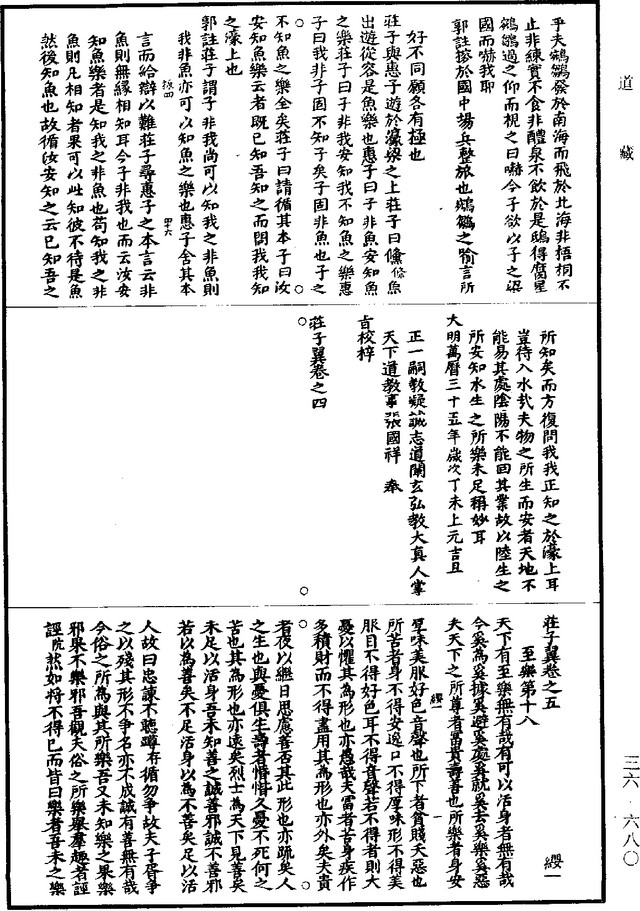 道藏
乎夫鵷鶵發於南海而飛於北海非梧桐不
止非練實不食非醴泉不飲於是鴟得腐鼠
鵷鶵過之仰而視之曰嚇今子欲以子之梁
國而嚇我耶
郭註搜於國中揚兵整旅也鵷鶵之喻言所
好不同願各有極也
莊子與惠子遊於濠梁之上莊子曰鯈鯈魚
出遊從容是魚樂也惠子曰子非魚安知魚
之樂莊子曰子非我安知我不知魚之樂惠
子曰我非子固不知子矣子固非魚也子之
不知魚之樂全矣莊子曰請循其本子曰汝
安知魚樂云者既已知吾知之而問我我知
之濠上也
郭註莊子謂子非我尚可以知我之非魚則
我非魚亦可以知魚之樂也惠子舍其本
言而給辯以難莊子尋惠子之本言云非
魚則無緣相知耳今子非我也而云汝安
知魚樂者是知我之非魚也苟知我之非
魚則凡相知者果可以此知彼不待是魚
然後知魚也故循汝安知之云已知吾之
所知矣而方復問我我正知之於濠上耳
豈待入水哉夫物之所生而安者天地不
能易其處陰陽不能回其業故以陸生之
所安知水生之所樂未足稱妙耳
大明萬曆三十五年歲次丁未上元吉旦
正一嗣教凝誠志道闡玄弘教大真人掌
天下道教事張國祥　奉
旨校梓
莊子翼卷之四
莊子翼卷之五
纓一
至樂第十八
天下有至樂無有哉有可以活身者無有哉
今奚為奚據奚避奚處奚就奚去奚樂奚惡
夫天下之所尊者富貴壽善也所樂者身安
厚味美服好色音聲也所下者貧賤夭惡也
所苦者身不得安逸口不得厚味形不得美
服目不得好色耳不得音聲若不得者則大
憂以懼其為形也亦愚哉夫富者苦身疾作
多積財而不得盡用其為形也亦外矣夫貴
者夜以繼日思慮善否其為形也亦疏矣人
之生也與憂俱生壽者惛惛久憂不死何之
苦也其為形也亦遠矣烈士為天下見善矣
未足以活身吾未知善之誠善邪誠不善邪
若以為善矣不足活身以為不善矣足以活
人故曰忠諫不聽蹲存循勿爭故夫子胥爭
之以殘其形不爭名亦不成誠有善無有哉
今俗之所為與其所樂吾又未知樂之果樂
邪果不樂邪吾觀夫俗之所樂舉羣趣者誙
誙䀪然如將不得已而皆曰樂者吾未之樂
三六・六八〇